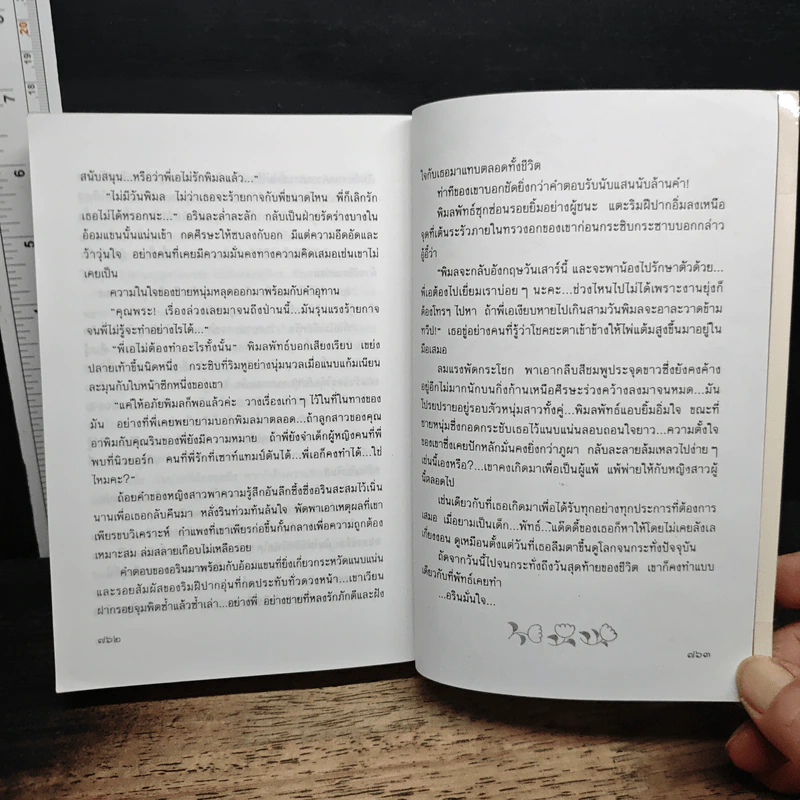 สนับสนุน...หรือว่าพี่เอไม่รักพิมลแล้ว...”
“ไม่มีวันพิมล ไม่ว่าเธอจะร้ายกาจกับพี่ขนาดไหน พี่ก็เลิกรัก
เธอไม่ได้หรอกนะ...” อรินละล่ำละลัก กลับเป็นฝ่ายรัดร่างบางใน
อ้อมแขนนั้นแน่นเข้า กดศีรษะให้ซบลงกับอก มีแต่ความอึดอัดและ
ว้าวุ่นใจ อย่างคนที่เคยมีความมั่นคงทางความคิดเสมอเช่นเขาไม่
เคยเป็น
ความในใจของชายหนุ่มหลุดออกมาพร้อมกับคำอุทาน
“คุณพระ! เรื่องล่วงเลยมาจนถึงป่านนี้...มันรุนแรงร้ายกาจ
จนพี่ไม่รู้จะทำอย่างไรได้...”
“พี่เอไม่ต้องทำอะไรทั้งนั้น” พิมลพัทธ์บอกเสียงเรียบ เขย่ง
ปลายเท้าขึ้นนิดหนึ่ง กระซิบที่ริมหูอย่างนุ่มนวลเมื่อแนบแก้มเนียน
ละมุนกับใบหน้าซีกหนึ่งของเขา
“แค่ให้อภัยพิมลก็พอแล้วค่ะ วางเรื่องเก่าๆ ไว้ในที่ในทางของ
มัน อย่างที่พี่เอเคยพยายามบอกพิมลมาตลอด...ถ้าลูกสาวของคุณ
อาพิมกับคุณรินของพี่ยังมีความหมาย ถ้าพี่ยังจำเด็กผู้หญิงคนที่พี่
พบที่นิวยอร์ก คนที่พี่รักที่เซาท์แทมป์ตันได้...พี่เอก็คงทำได้...ใช่
ไหมคะ?”
ถ้อยคำของหญิงสาวพาความรู้สึกอันลึกซึ้งซึ่งอรินสะสมไว้เนิ่น
นานเพื่อเธอกลับคืนมา หลั่งรินท่วมท้นล้นใจ พัดพาเอาเหตุผลที่เขา
เพียรขบวิเคราะห์ กำแพงที่เขาเพียรก่อขึ้นกั้นกลางเพื่อความถูกต้อง
เหมาะสม ล่มสลายเกือบไม่เหลือรอย
คำตอบของอรินมาพร้อมกับอ้อมแขนที่ยิ่งเกี่ยวกระหวัดแนบแน่น
และรอยสัมผัสของริมฝีปากอุ่นที่กดประทับทั่วดวงหน้า...เขาเวียน
ฝากรอยจุมพิตซ้ำแล้วซ้ำเล่า...อย่างพี่ อย่างชายที่หลงรักภักดีและฝัง
๗๖๒
ใจกับเธอมาแทบตลอดทั้งชีวิต
ท่าทีของเขาบอกชัดยิ่งกว่าคำตอบรับนับแสนนับล้านคำ!
พิมลพัทธ์ซุกซ่อนรอยยิ้มอย่างผู้ชนะ แตะริมฝีปากอิ่มลงเหนือ
จุดที่เต้นระรัวภายในทรวงอกของเขาก่อนกระซิบกระซาบบอกกล่าว
ผู้อี้ว่า
“พิมลจะกลับอังกฤษวันเสาร์นี้ และจะพาน้องไปรักษาตัวด้วย...
พี่เอต้องไปเยี่ยมเราบ่อยๆ นะคะ...ช่วงไหนไปไม่ได้เพราะงานยุ่งก็
ต้องโทรฯ ไปหา ถ้าพี่เอเงียบหายไปเกินสามวันพิมลจะอาละวาดข้าม
ทวีป!” เธอขู่อย่างคนที่รู้ว่าโชคชะตาเข้าข้างให้ไพ่แต้มสูงขึ้นมาอยู่ใน
มือเสมอ
ลมแรงพัดกระโชก พาเอากลีบสีชมพูประจุดขาวซึ่งยังคงค้าง
อยู่อีกไม่มากนักบนกิ่งก้านเหนือศีรษะร่วงคว้างลงมาจนหมด...มัน
โปรยปรายอยู่รอบตัวหนุ่มสาวทั้งคู่...พิมลพัทธ์แอบยิ้มอิ่มใจ ขณะที่
ชายหนุ่มซึ่งกอดกระชับเธอไว้แนบแน่นลอบถอนใจยาว...ความตั้งใจ
ของเขาซึ่งเคยปักหลักมั่นคงยิ่งกว่าภูผา กลับละลายล้มเหลวไปง่ายๆ
เช่นนี้เองหรือ?...เขาคงเกิดมาเพื่อเป็นผู้แพ้ แพ้พ่ายให้กับหญิงสาวผู้
นี้ตลอดไป
เช่นเดียวกับที่เธอเกิดมาเพื่อได้รับทุกอย่างทุกประการที่ต้องการ
เสมอ เมื่อยามเป็นเด็ก...พัทธ์...แด๊ดดี้ของเธอก็หาให้โดยไม่เคยลังเล
เกี่ยงงอน ดูเหมือนตั้งแต่วันที่เธอลืมตาขึ้นดูโลกจนกระทั่งปัจจุบัน
ถัดจากวันนี้ไปจนกระทั่งถึงวันสุดท้ายของชีวิต เขาก็คงทำแบบ
เดียวกับที่พัทธ์เคยทำ
...อรินมั่นใจ...
๗๖๓